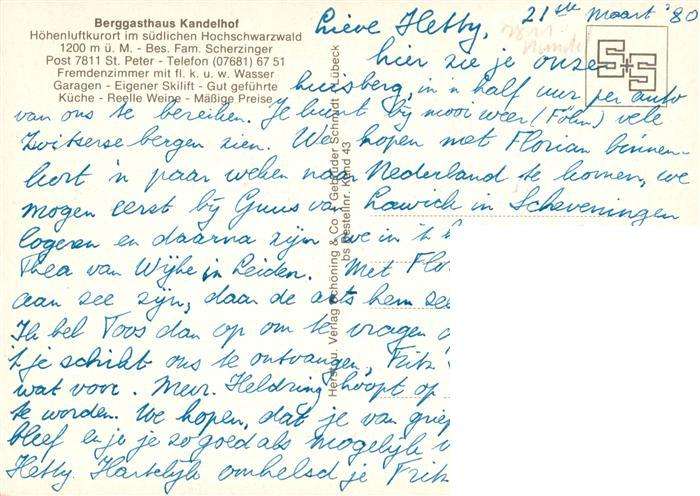 Berggasthaus Kandelhof
Höhenluftkurort im südlichen Hochschwarzwald
1200 m ü. M. - Bes. Fam. Scherzinger
Post 7811 St. Peter - Telefon (07681) 67 51
Fremdenzimmer mit fl. k. u. w. Wasser
Garagen - Eigener Skilift - Gut geführte
Küche - Reelle Weine - Mäßige Preise
Herst. u. Verlag Schöning & Co + Gebrüder Schmidt Lübeck
bs Bestellnr. Kand 43
21ste Maart '80
Lieve Hetty,
hier zie je onze
huisberg, in 'n half uur per auto
van ons te bereiken. Je kunt bij mooi weer (Föhn) vele
Zwitserse bergen zien. We hopen met Florian binnen-
kort 'n paar weken naar Nederland te komen, we
mogen eerst bij Guus van Lawick in Scheveningen
logeren en daarna zijn we in 't
Thea van Wijhe in Leiden. Met Flo
aan zee zijn, daar de arts hem zee
Ik bel Toos dan op om te vragen
't je schikt ons te ontvangen, Fritz
wat voor. Mevr. Heldring hoopt op
te worden. We hopen, dat je van griep
bleef en je je zo goed als mogelijk
Hetty. Hartelijk omhelsd je Fritz